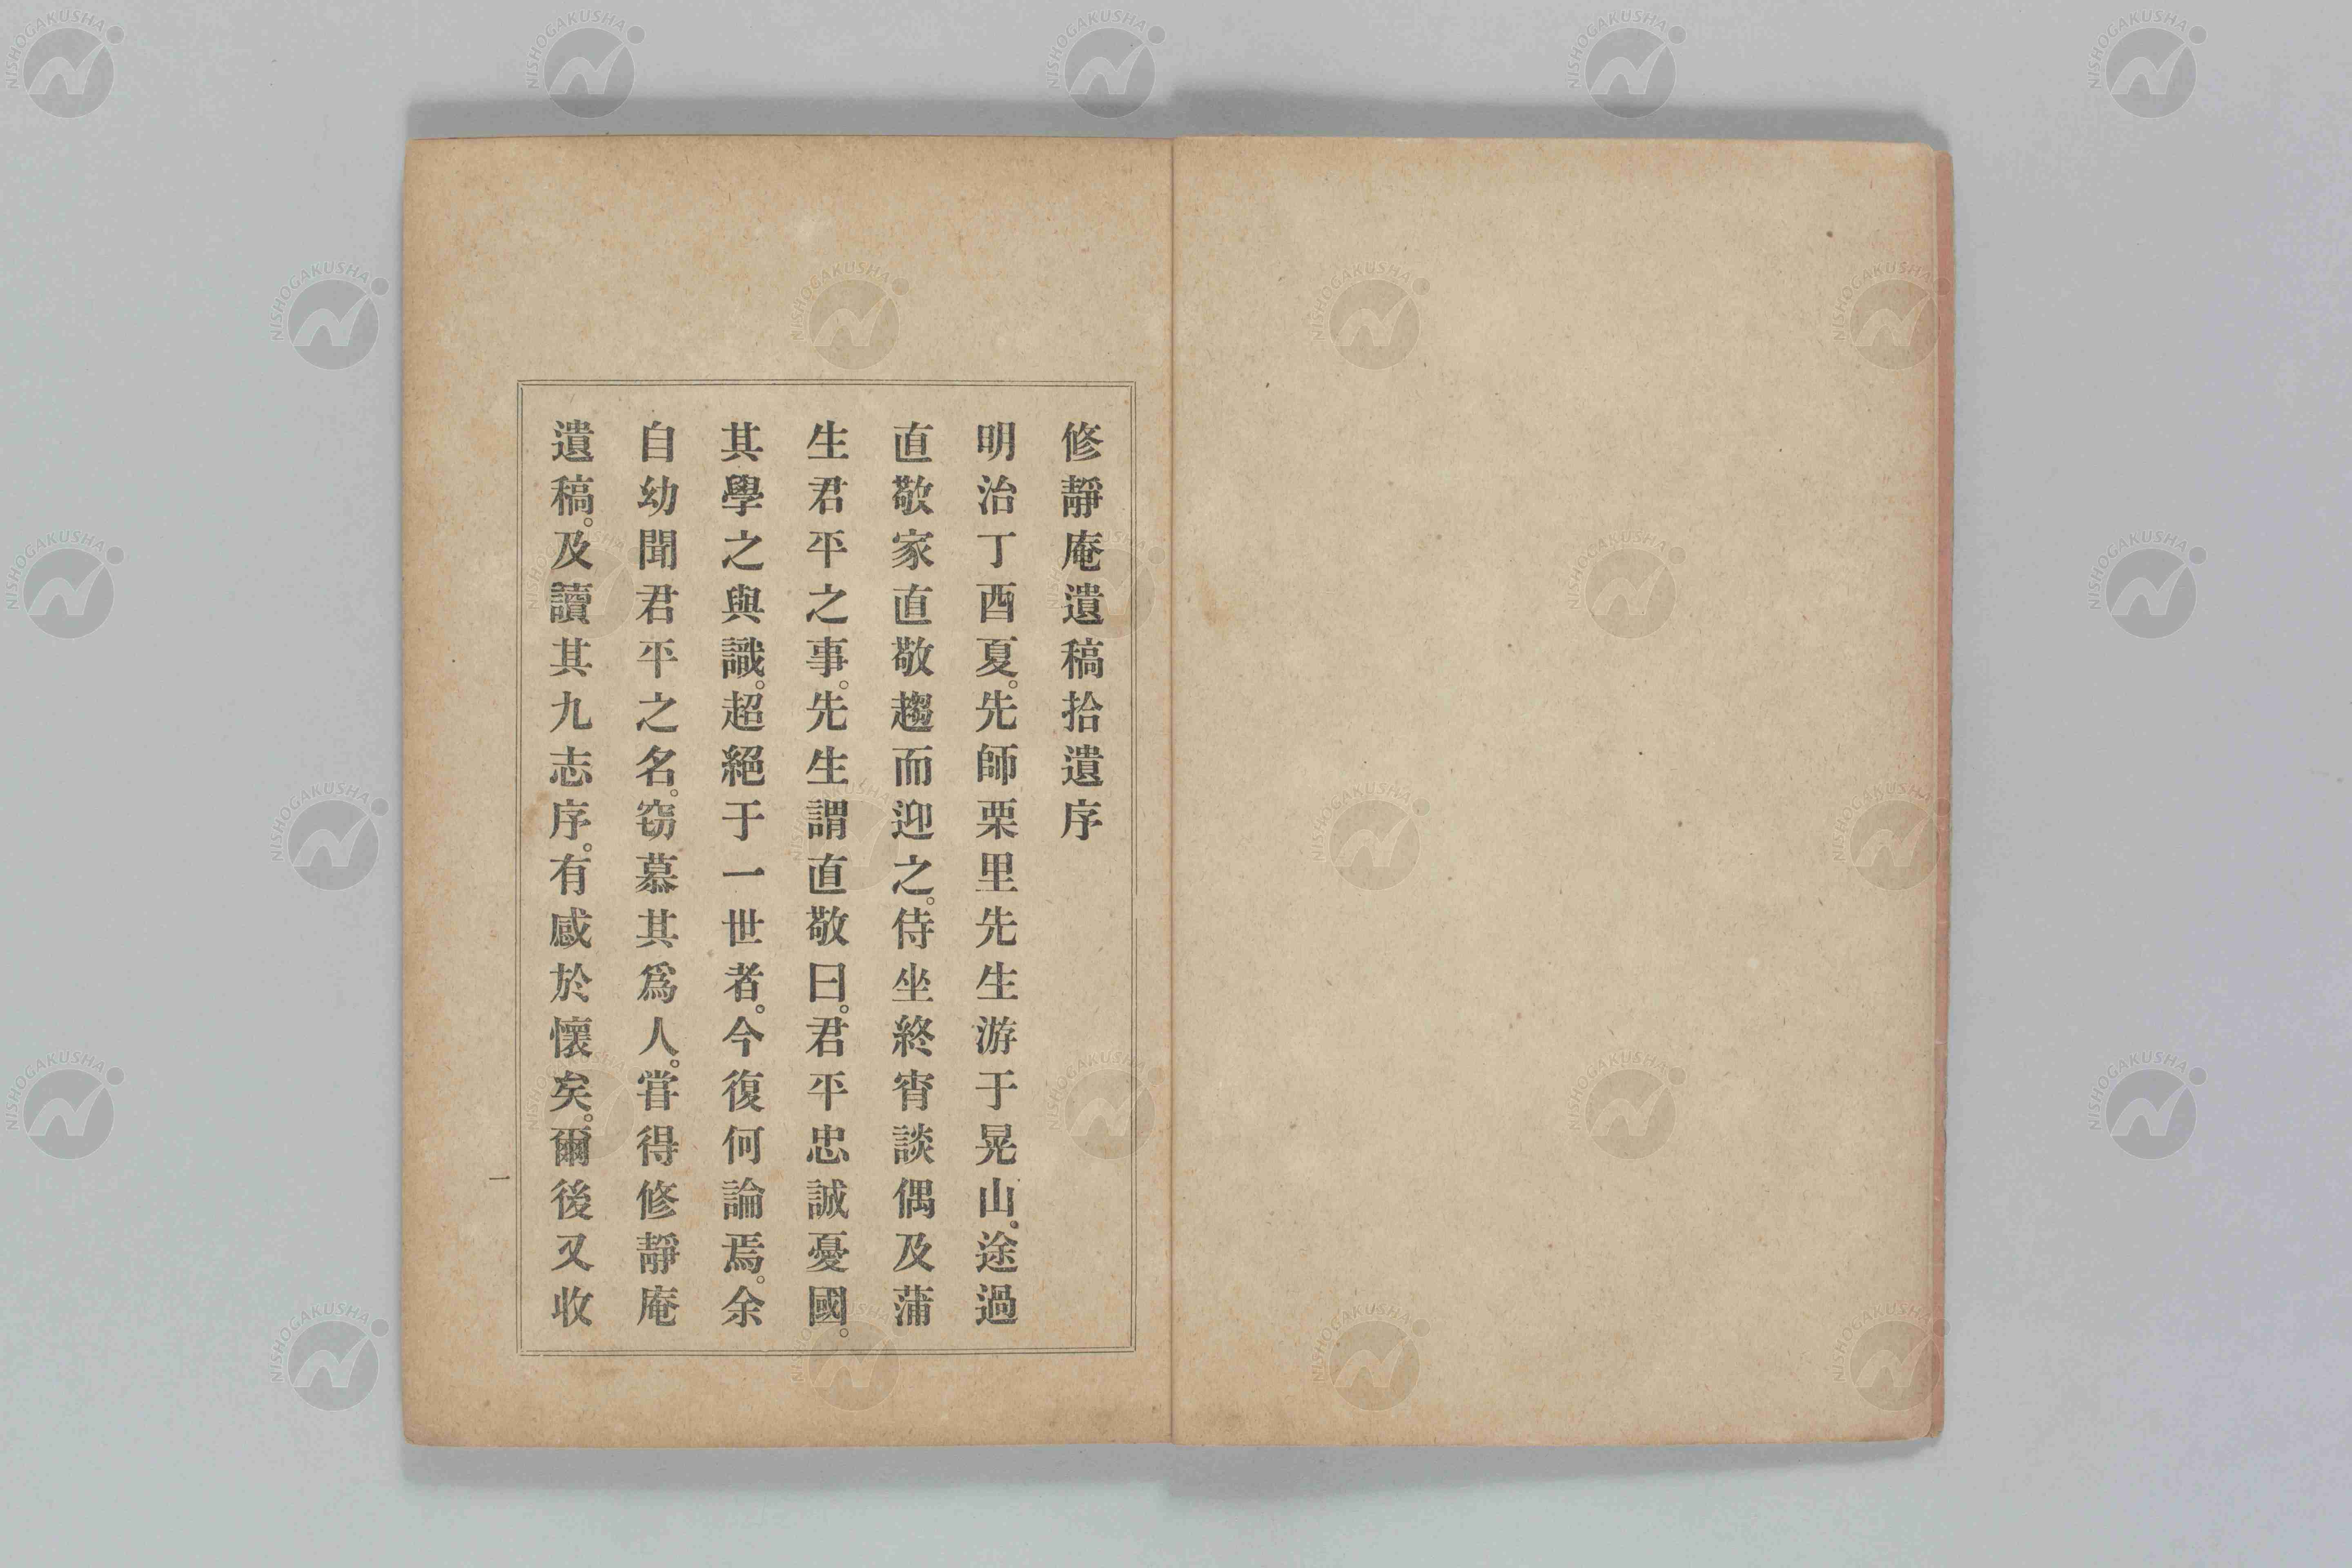 修靜庵遺稿拾遺序
明治丁酉夏。先師栗里先生游于晃山。途過
直敬家直敬趨而迎之。侍坐終宵談偶及蒲
生君平之事。先生謂直敬曰。君平忠誠憂國。
其學之與識。超絕于一世者。今復何論焉。余
自幼聞君平之名。窃慕其爲人。甞得修靜庵
遺稿。及讀其九志序。有感於懷矣。爾後又收
一
NISHOGAKUSHA